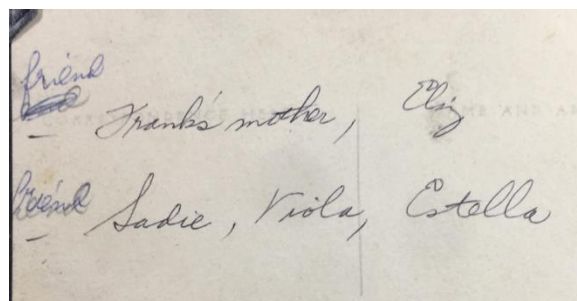 friend
– Frank's mother, Eliz
friend
– Sadie, Viola, Estella